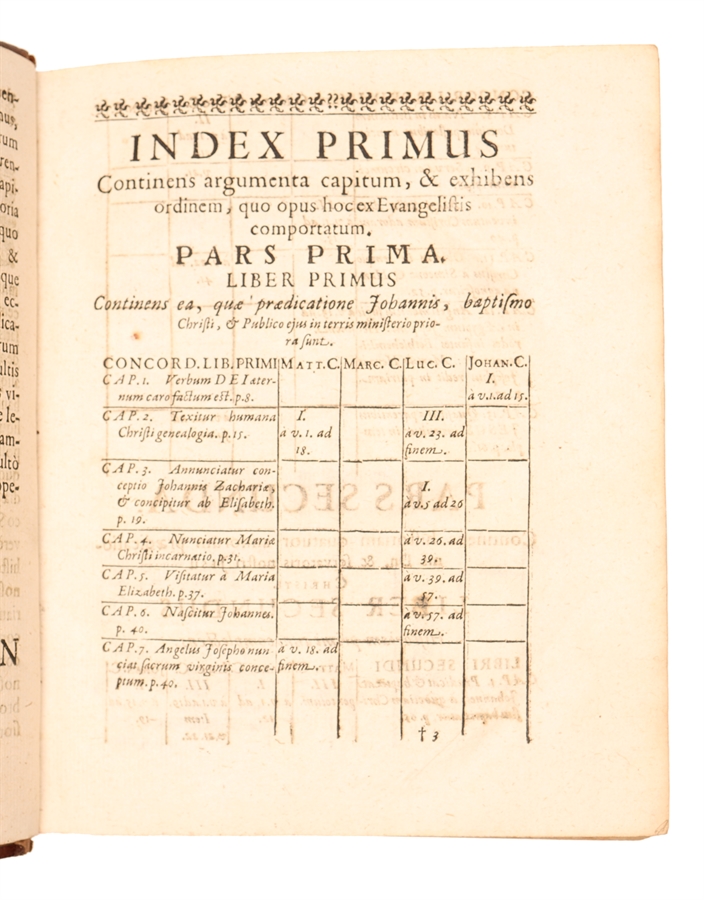 INDEX PRIMUS
Continens argumenta capitum, & exhibens
ordinem, quo opus hoc ex Evangelistis
comportatum.
PARS PRIMA.
LIBER PRIMUS
Continens ea, quæ prædicatione Johannis, baptismo
Christi, & Publico ejus in terris ministerio prio-
ra sunt.
CONCORD. LIB. PRIMI MATT. C. MARC. C. LUC. C. JOHAN. C.
CAP. 1. Verbum DEI æter- I.
num caro factum est. p. 8. à v. 1. ad 15.
CAP. 2. Texitur humana I. III.
Christi genealogia. p. 15. à v. 1. ad à v. 23. ad
18. finem.
CAP. 3. Annunciatur con-
ceptio Johannis Zachariæ, I.
& concipitur ab Elisabeth. à v. 5 ad 26
p. 19.
CAP. 4. Nunciatur Mariæ à v. 26. ad
Christi incarnatio. p. 31. 39.
CAP. 5. Visitatur à Maria à v. 39. ad
Elizabeth. p. 37. 57.
CAP. 6. Nascitur Johannes. à v. 57. ad
p. 40. finem.
CAP. 7. Angelus Josepho nun- à v. 18. ad
ciat sacrum virginis conce- finem.
ptum. p. 40.
† 3